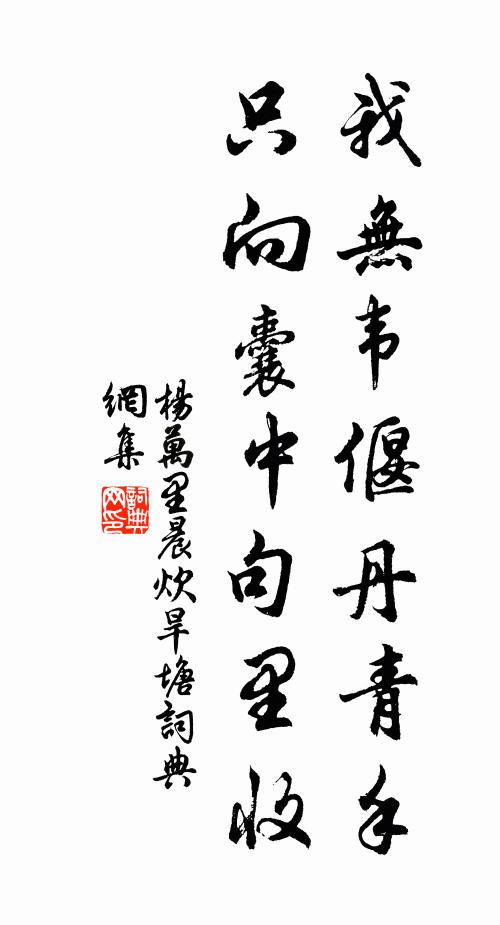 我無韦偃丹青手
只向囊中句里收
楊萬里晨炊旱塘詞典
網集
詞典网印